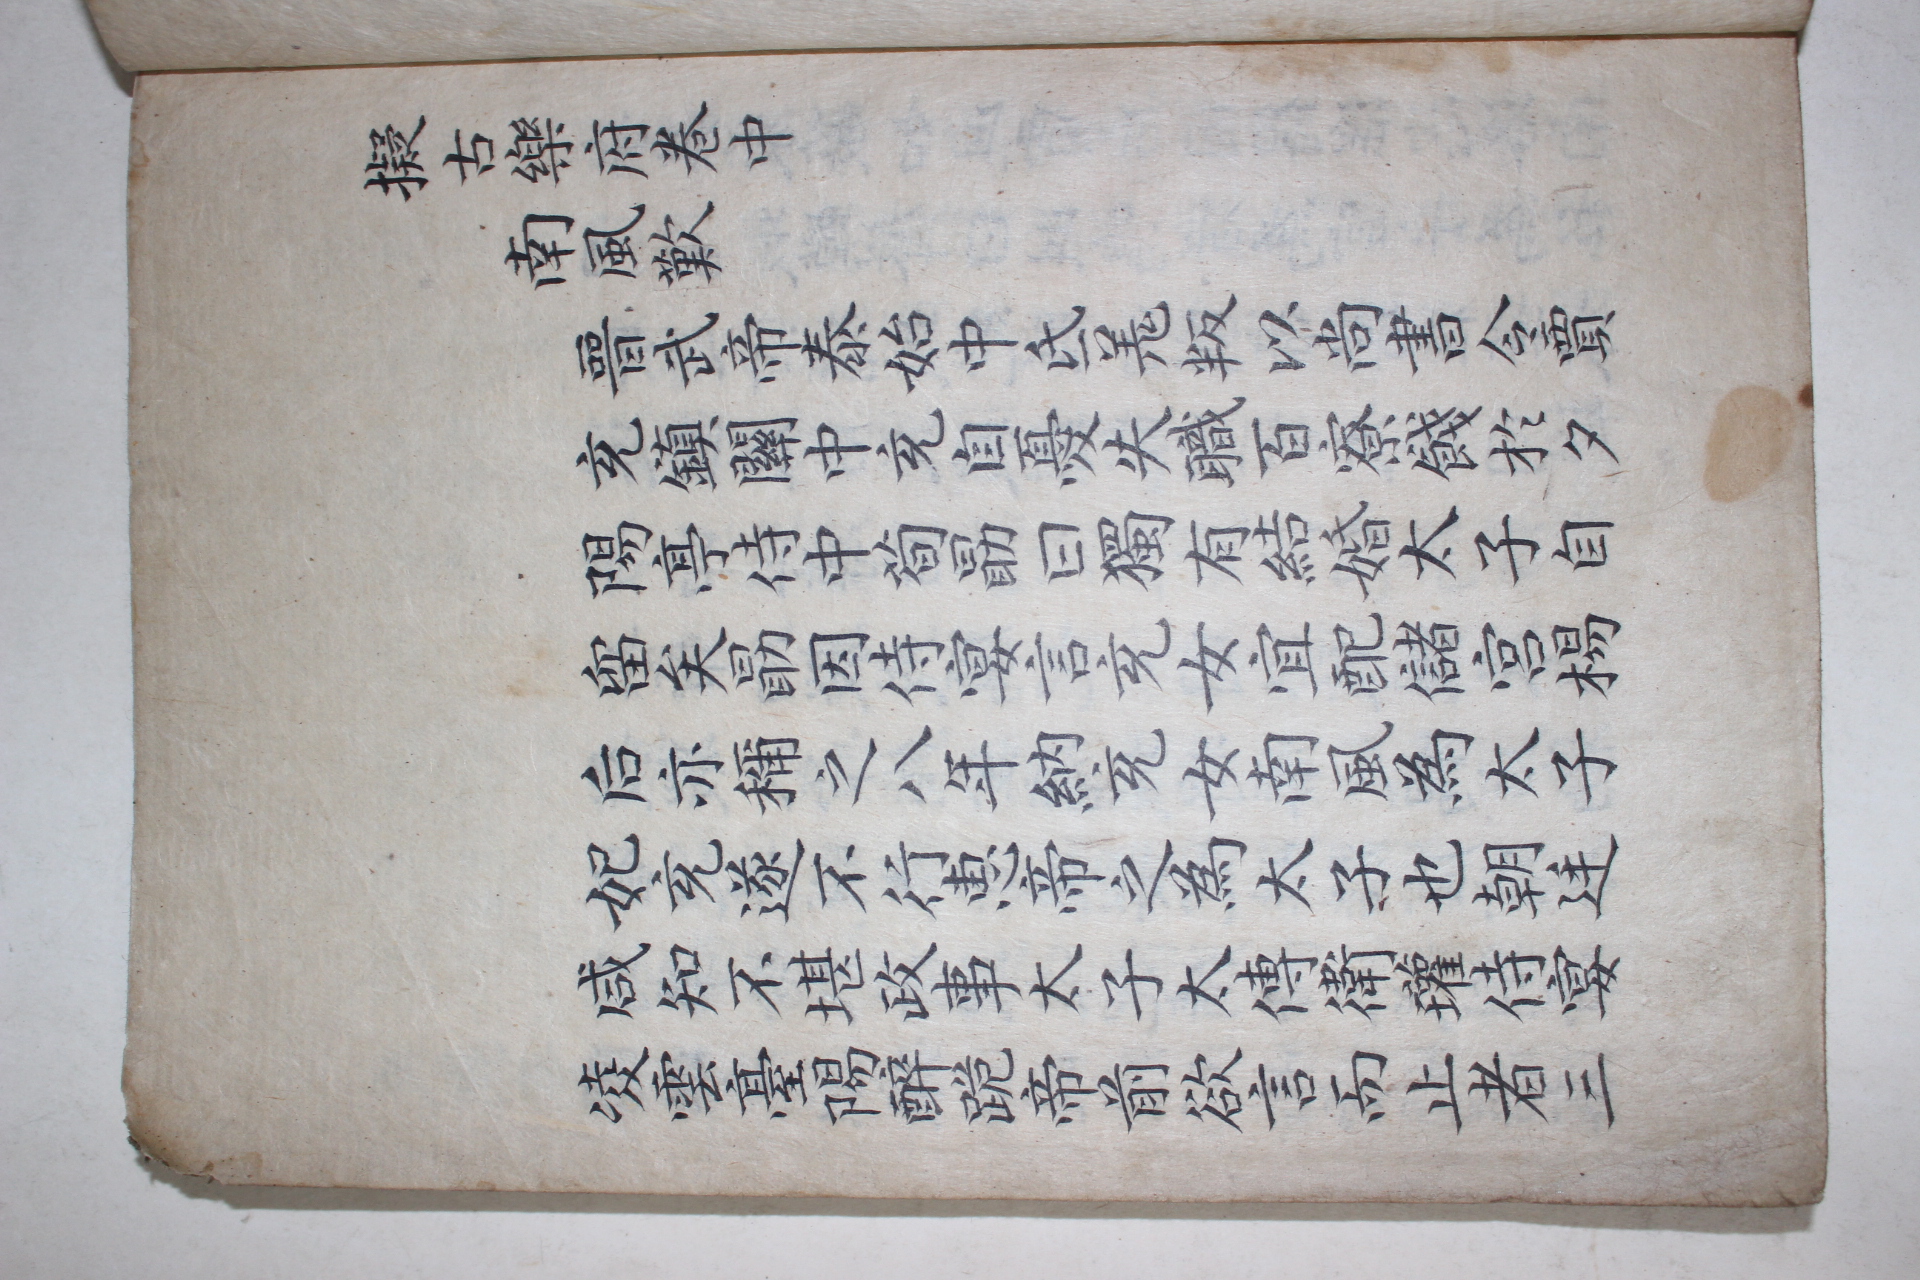 擬古樂府卷中
南風歎
晉武帝泰始中氐羌叛以尚書令賈
充鎮關中充自憂失職百寮餞於夕
陽亭侍中荀勖曰獨有結婚太子自
留矣勖因侍宴言充女宜配儲宮楊
后亦稱之八年納充女南風為太子
妃充遂不行惠帝之為太子也朝廷
咸知不堪政事太子太傅衛瓘侍宴
凌雲臺陽醉跪帝前欲言而止者三